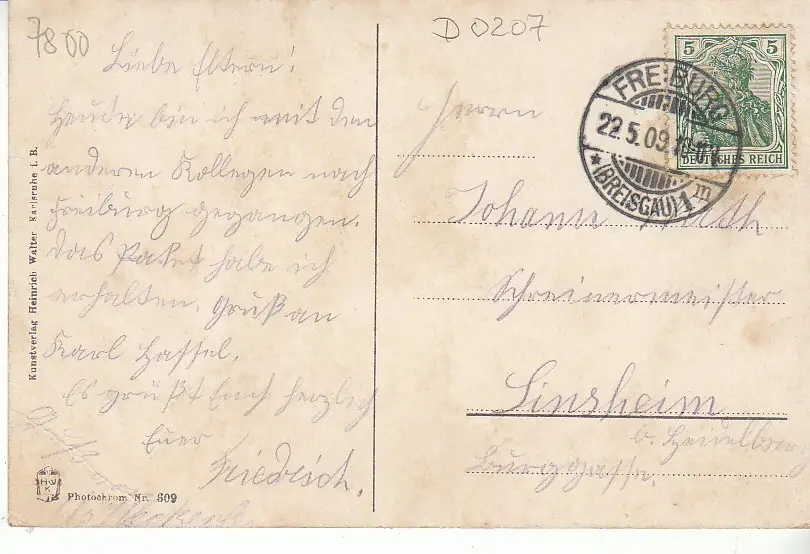 7800
D 0207
Liebe Eltern!
Heute bin ich mit den
anderen Kollegen nach
Freiburg gegangen.
Das Paket habe ich
erhalten, Gruß an
Karl Hassel.
Es grüßt Euch herzlich
Euer
Friedrich.
Kunstverlag Heinrich Walter Karlsruhe i. B.
Photochrom Nr. 609
5 5
DEUTSCHES REICH
FREIBURG
22.5.09.
* (BREISGAU) 1 m
Herrn
Johann
Schreinermeister
Sinsheim
b. Heidelberg
Burggasse.